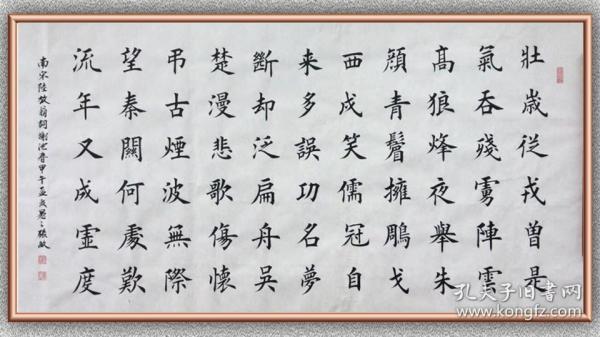 壮歲從戎曽是
氣吞殘虜陣雲
髙狼烽夜舉朱
顔青鬢擁鵰戈
西戍笑儒冠自
来多誤功名夢
斷却泛扁舟吴
楚漫悲歌傷懷
弔古煙波無際
望秦關何處歎
流年又成虛度
南宋陸放翁詞謝池春甲午張敏
孔夫子旧书网
BOOK.KONGFZ.COM